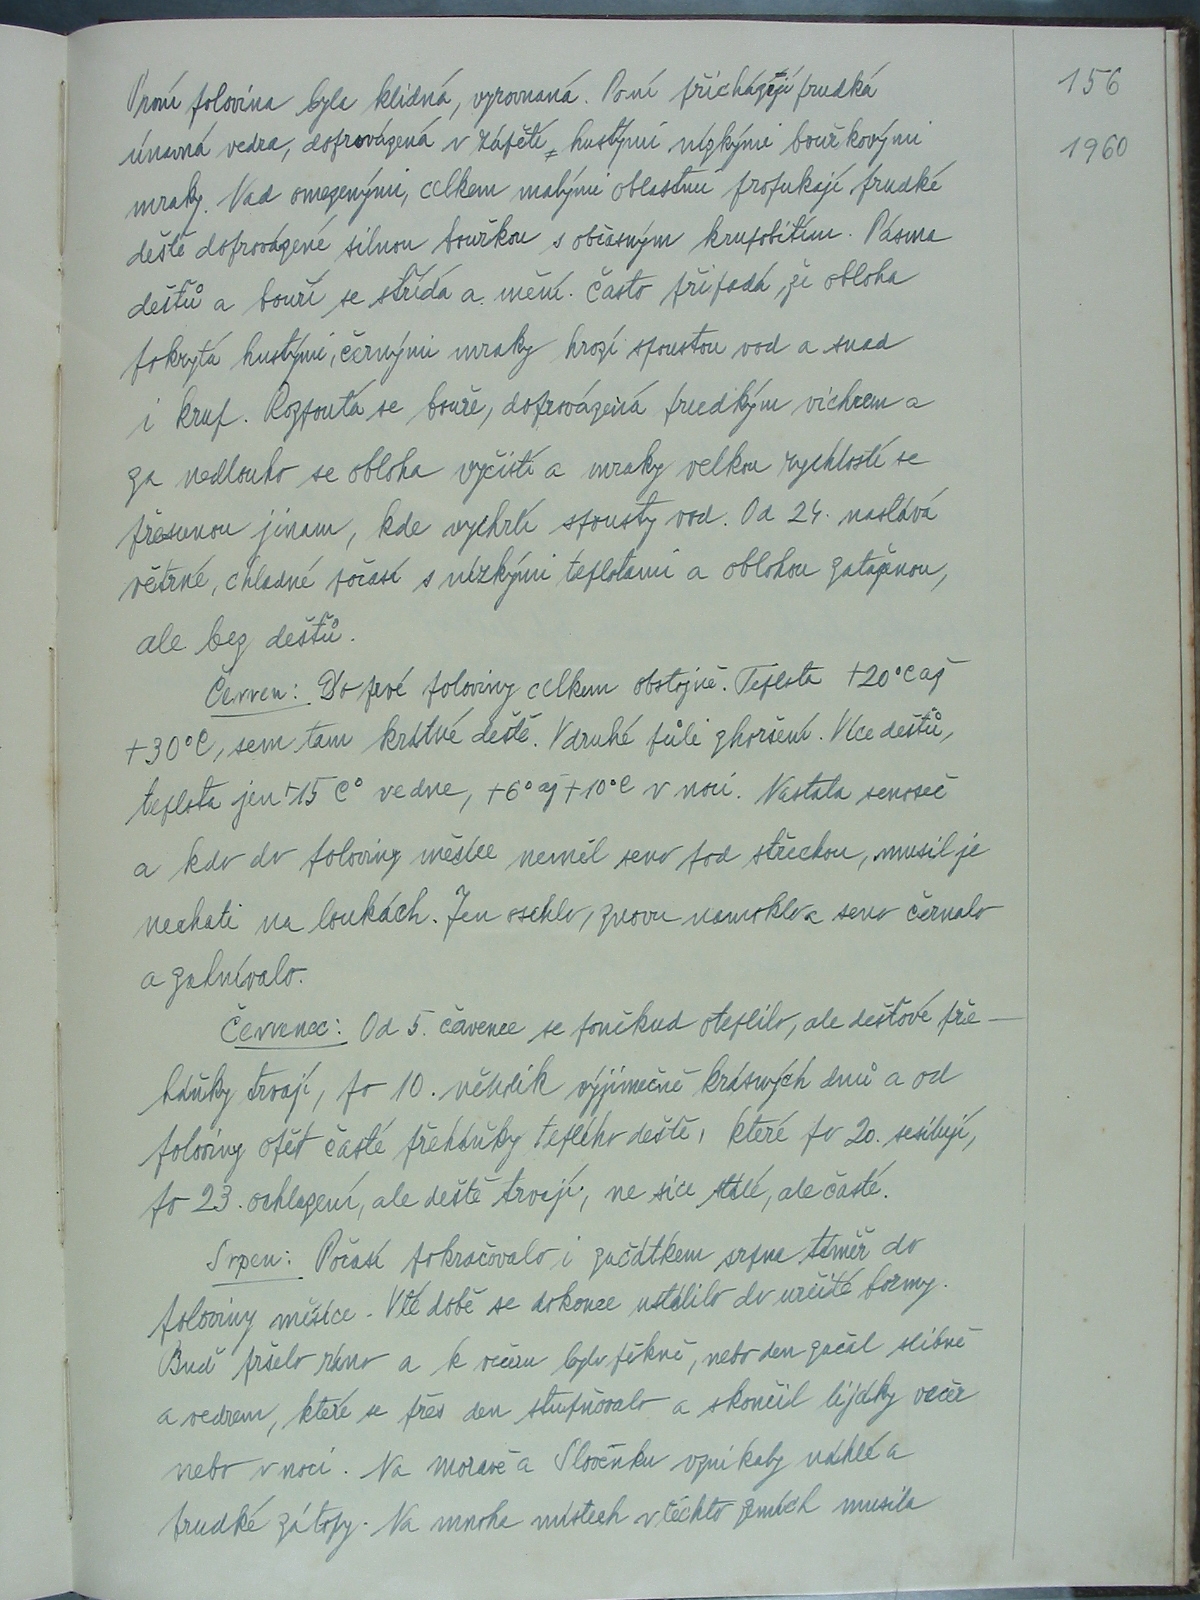 156
1960
První polovina byla klidná, vyrovnaná. Poní přicházejí prudká
únavná vedra, doprovázená v zápětí hustými nízkými bouřkovými
mraky. Nad omezenými, celkem malými oblastmi propukají prudké
deště doprovázené silnou bouřkou s občasným krupobitím. Pásma
dešťů a bouří se střídá a mění. Často připadá, že obloha
pokrytá hustými, černými mraky hrozí spoustou vod a snad
i krup. Rozpoutá se bouře, doprovázená prudkým vichrem a
za nedlouho se obloha vyčistí a mraky velkou rychlostí se
přesunou jinam, kde vychrlí spousty vod. Od 24. nastává
větrné, chladné počasí s nízkými teplotami a oblohou zataženou,
ale bez dešťů.
Červen: Do prvé poloviny celkem obstojné. Teplota +20°C až
+30°C, sem tam krátké deště. V druhé půli zhoršení. Více dešťů,
teplota jen +15 C° ve dne, +6° až +10°C v noci. Nastala senoseč
a kdo do poloviny měsíce neměl seno pod střechou, musil je
nechati na loukách. Jen oschlo, znovu namoklo a seno černalo
a zahnívalo.
Červenec: Od 5. července se poněkud oteplilo, ale dešťové pře-
háňky trvají, po 10. několik výjimečně krásných dnů a od
poloviny opět časté přeháňky teplého deště, které po 20. sesilují,
po 23. ochlazení, ale deště trvají, ne sice stálé, ale časté.
Srpen: Počasí pokračovalo i začátkem srpna téměř do
poloviny měsíce. V té době se dokonce ustálilo do určité formy.
Buď pršelo ráno a k večeru bylo pěkně, nebo den začal slibně
a vedrem, které se přes den stupňovalo a skončil lijáky večer
nebo v noci. Na Moravě a Slovensku vznikaly náhlé a
prudké zátopy. Na mnoha místech v těchto zemích musila